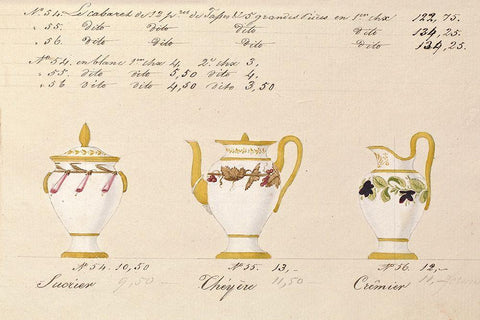 No. 54. Le cabaret de 12 prs. de Tasses & 5 grandes Pièces en 1er chx 122,75.
" 55. Dito Dito Dito Dito 134,25.
" 56. Dito Dito Dito Dito 134,25.
No. 54. en blanc 1er chx 4, 2e chx 3,
" 55. dito dito 5,50 dito 4,
" 56 dito dito 4,50 dito 3,50
No. 54. 10,50
No. 55. 13,-
No. 56. 12,-
Sucrier 9,50-
Théyère 11,50-
Crêmier 11,-